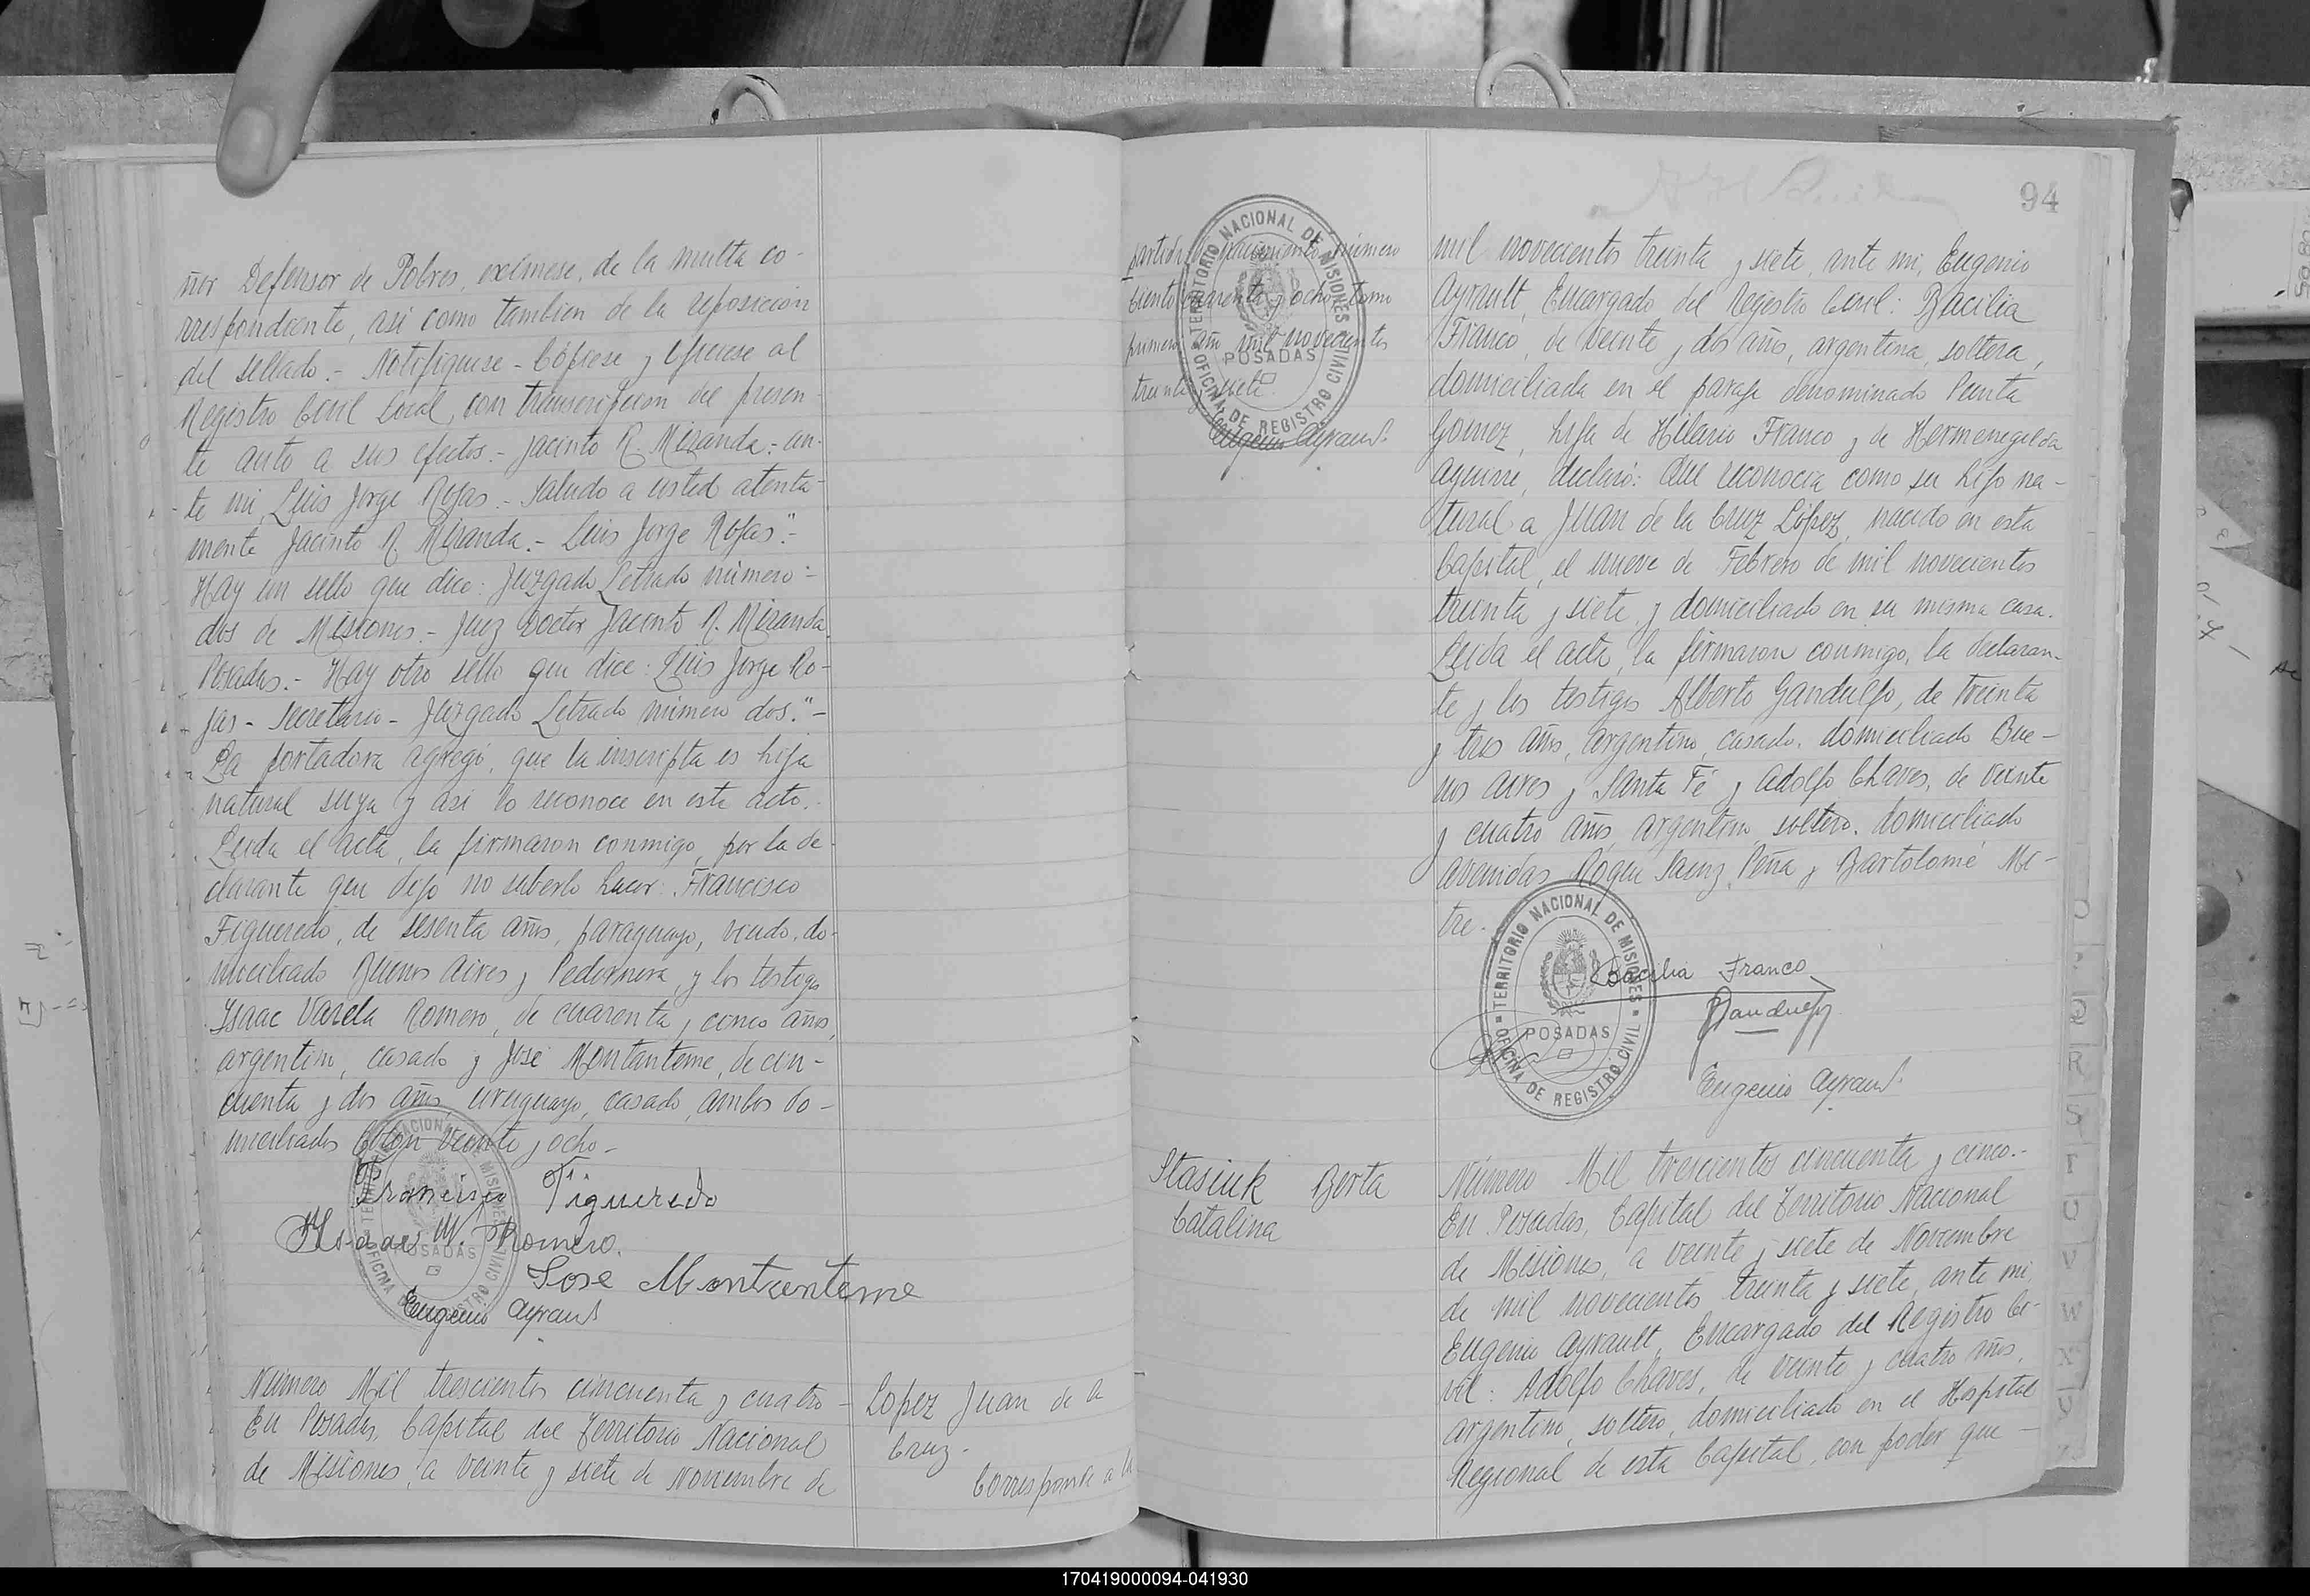 ñor Defensor de Pobres, exímese, de la multa co-
rrespondiente, asi como tambien de la reposición
del sellado.- Notifíquese - Cópiese y ofíciese al
Registro Civil local, con transcripcion del presen-
te auto a sus efectos.- Jacinto R. Miranda.- an-
te mi, Luis Jorge Rojas.- Saludo a usted atenta-
mente Jacinto R. Miranda.- Luis Jorge Rojas".-
Hay un sello que dice: Juzgado Letrado número -
dos de Misiones.- Juez Doctor Jacinto R. Miranda
Posadas.- Hay otro sello que dice: Luis Jorge Ro-
jas - Secretario - Juzgado Letrado número dos."-
La portadora agregó, que la inscripta es hija
natural suya y asi lo reconoce en este acto.
Leida el acta, la firmaron conmigo, por la de-
clarante que dijo no saberlo hacer: Francisco
Figueredo, de sesenta años, paraguayo, viudo, do-
miciliado Buenos Aires y Pedernera, y los testigos
Isaac Varela Romero, de cuarenta y cinco años,
argentino, casado y José Montanteme, de cin-
cuenta y dos años, uruguayo, casado, ambos do-
miciliados Colón veinte y ocho -
Francisco Figueredo
Isaac V. Romero.
José Montanteme
Eugenio Ayrault
Número Mil trescientos cincuenta y cuatro -
En Posadas, Capital del Territorio Nacional
de Misiones, a veinte y siete de Noviembre de
Lopez Juan de la
Cruz -
Corresponde a la
94
partida de nacimiento número
ciento cuarenta y ocho, tomo
primero año mil novecientos
treinta y siete.
Eugenio Ayrault
TERRITORIO NACIONAL DE MISIONES
POSADAS
OFICINA DE REGISTRO CIVIL
mil novecientos treinta y siete, ante mi, Eugenio
Ayrault, Encargado del Registro Civil: Bacilia
Franco, de veinte y dos años, argentina, soltera,
domiciliada en el paraje denominado Punta
Gomez, hija de Hilario Franco y de Hermenegilda
Aguirre, declaró: Que reconocia como su hijo na-
tural a Juan de la Cruz López, nacido en esta
Capital, el nueve de Febrero de mil novecientos
treinta y siete, y domiciliado en su misma casa.
Leida el acta, la firmaron conmigo, la declaran-
te y los testigos Alberto Gandulfo, de treinta
y tres años, argentino, casado, domiciliado Bue-
nos Aires y Santa Fé y Adolfo Chaves, de veinte
y cuatro años, argentino, soltero, domiciliado
avenidas Roque Saenz Peña y Bartolomé Mi-
tre -
Bacilia Franco
Gandulfo
TERRITORIO NACIONAL DE MISIONES
POSADAS
OFICINA DE REGISTRO CIVIL
Eugenio Ayrault
Stasiuk Berta
Catalina
Número Mil trescientos cincuenta y cinco.-
En Posadas, Capital del Territorio Nacional
de Misiones, a veinte y siete de Noviembre
de mil novecientos treinta y siete, ante mi,
Eugenio Ayrault, Encargado del Registro Ci-
vil: Adolfo Chaves, de veinte y cuatro años,
argentino, soltero, domiciliado en el Hospital
Regional de esta Capital, con poder que -
Q
R
S
T
U
V
W
X
Y
170419000094-041930